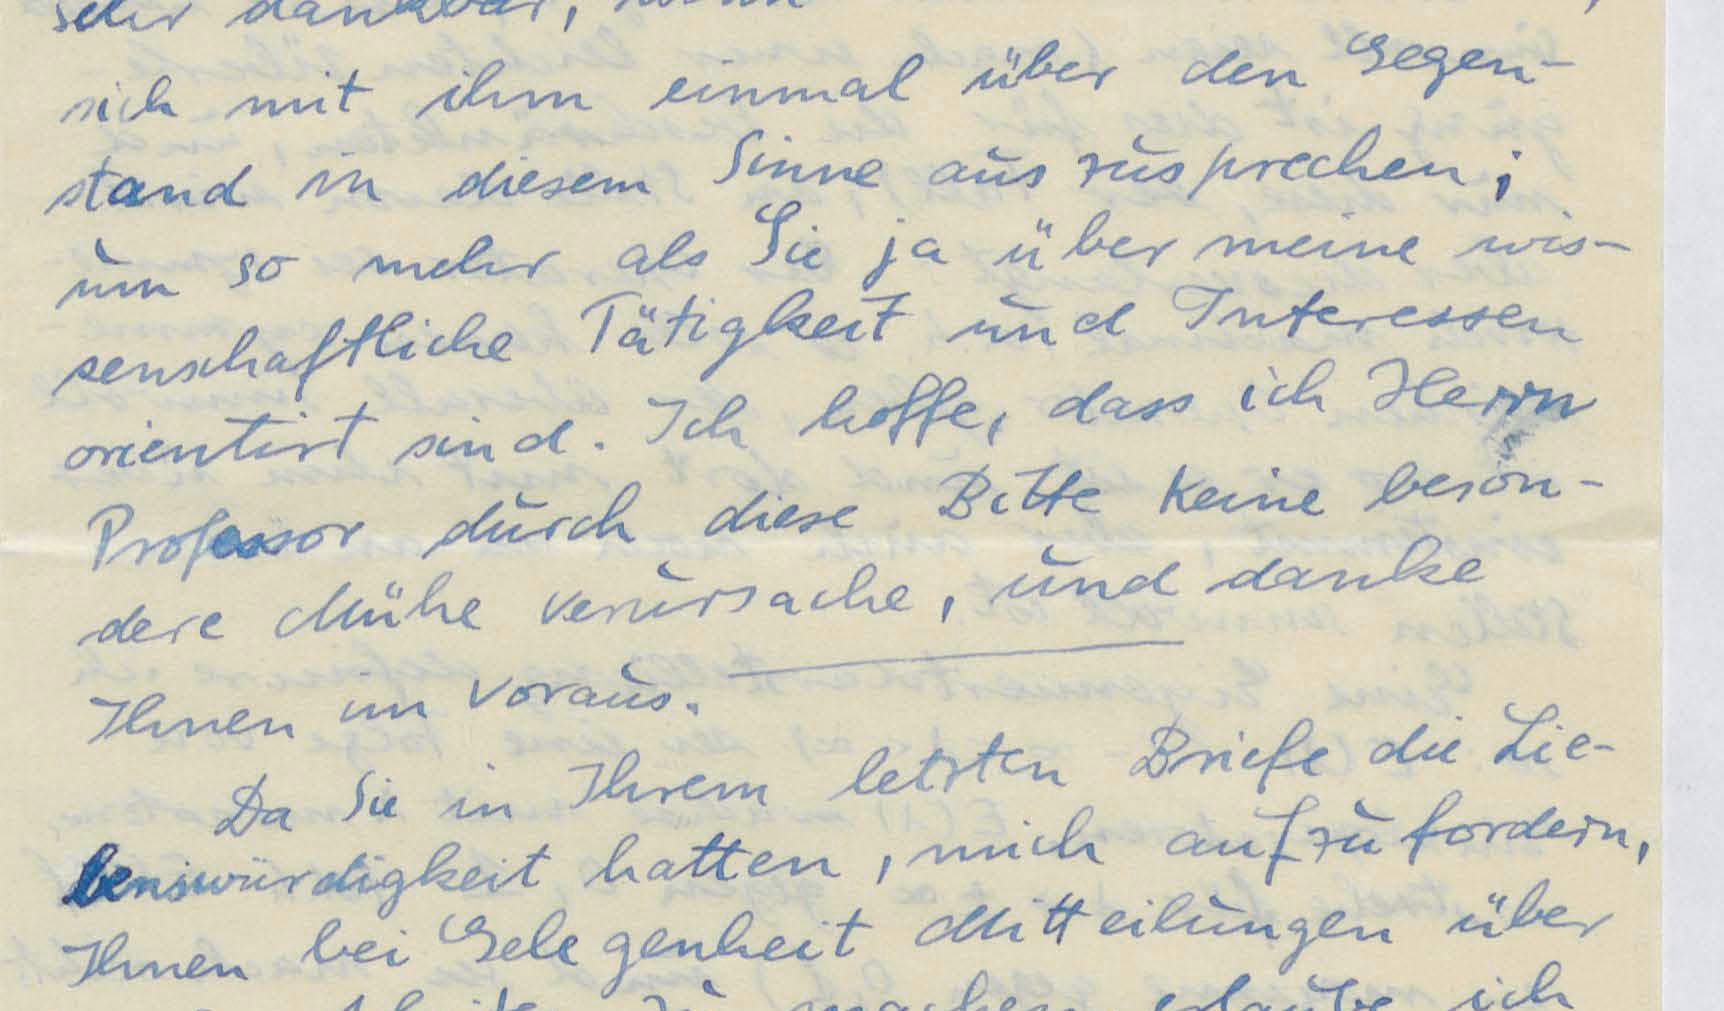 sehr dankbar,
sich mit ihm einmal über den Gegen-
stand in diesem Sinne auszusprechen;
um so mehr als Sie ja über meine wis-
senschaftliche Tätigkeit und Interessen
orientirt sind. Ich hoffe, dass ich Herrn
Professor durch diese Bitte keine beson-
dere Mühe verursache, und danke
Ihnen im voraus.
Da Sie in Ihrem letzten Briefe die Lie-
benswürdigkeit hatten, mich aufzufordern,
Ihnen bei Gelegenheit Mitteilungen über
zu machen erlaube ich